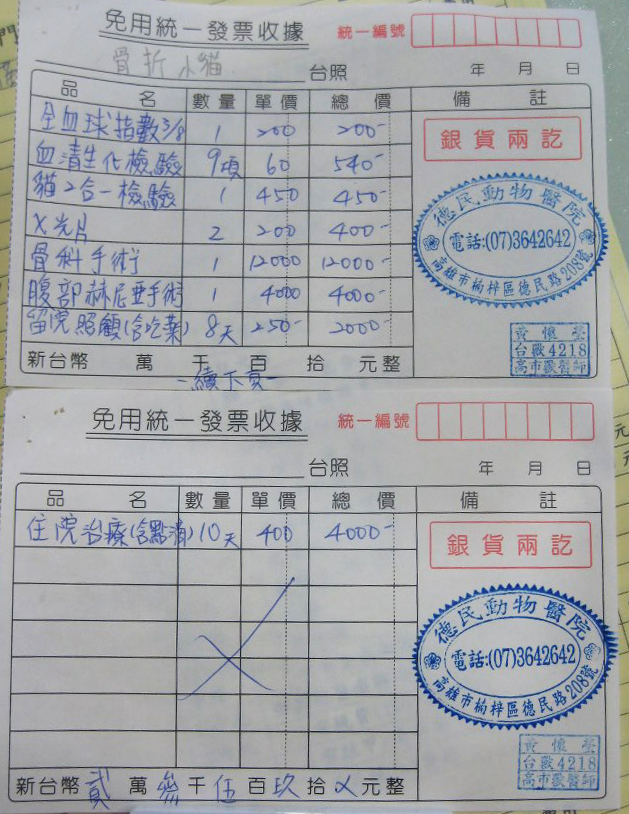 免用統一發票收據
統一編號
骨折小貓 台照 年 月 日
品 名 數量 單價 總 價 備 註
全血球指數3/8 1 200 200-
血清生化檢驗 9項 60 540-
貓2合一檢驗 1 450 450-
X光片 2 200 400-
骨科手術 1 12000 12000-
腹部赫尼亞手術 1 4000 4000-
留院照顧(含吃藥) 8天 250- 2000-
新台幣 萬 千 百 拾 元整
-續下頁-
銀貨兩訖
德民動物醫院
電話:(07)3642642
高雄市楠梓區德民路208號
黃懷瑩
台獸4218
高市獸醫師
免用統一發票收據
統一編號
台照 年 月 日
品 名 數量 單價 總 價 備 註
住院治療(含點滴) 10天 400 4000-
新台幣貳萬參千伍百玖拾X元整
銀貨兩訖
德民動物醫院
電話:(07)3642642
高雄市楠梓區德民路208號
黃懷瑩
台獸4218
高市獸醫師